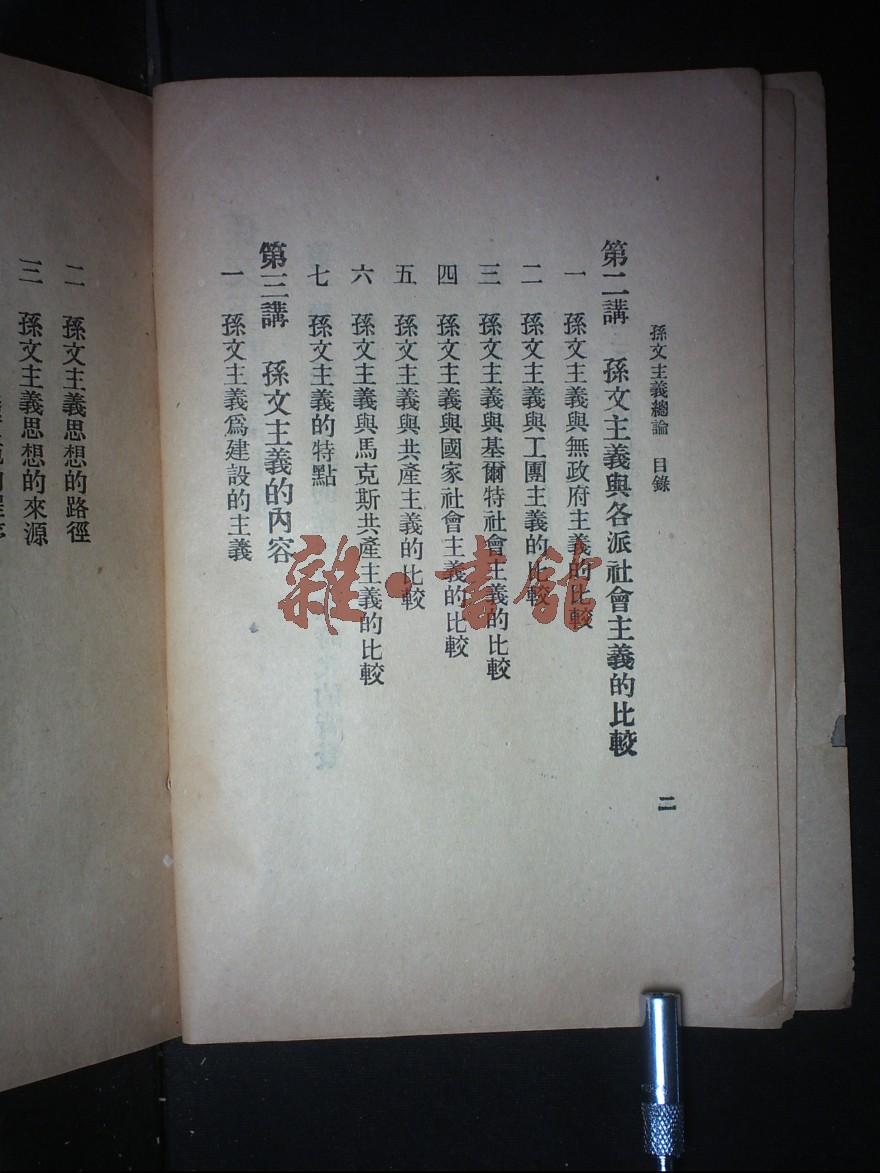 孫文主義總論 目錄 二
第二講 孫文主義與各派社會主義的比較
一 孫文主義與無政府主義的比較
二 孫文主義與工團主義的比較
三 孫文主義與基爾特社會主義的比較
四 孫文主義與國家社會主義的比較
五 孫文主義與共產主義的比較
六 孫文主義與馬克斯共產主義的比較
七 孫文主義的特點
第三講 孫文主義的內容
一 孫文主義爲建設的主義
二 孫文主義思想的路徑
三 孫文主義思想的來源
雜·書館